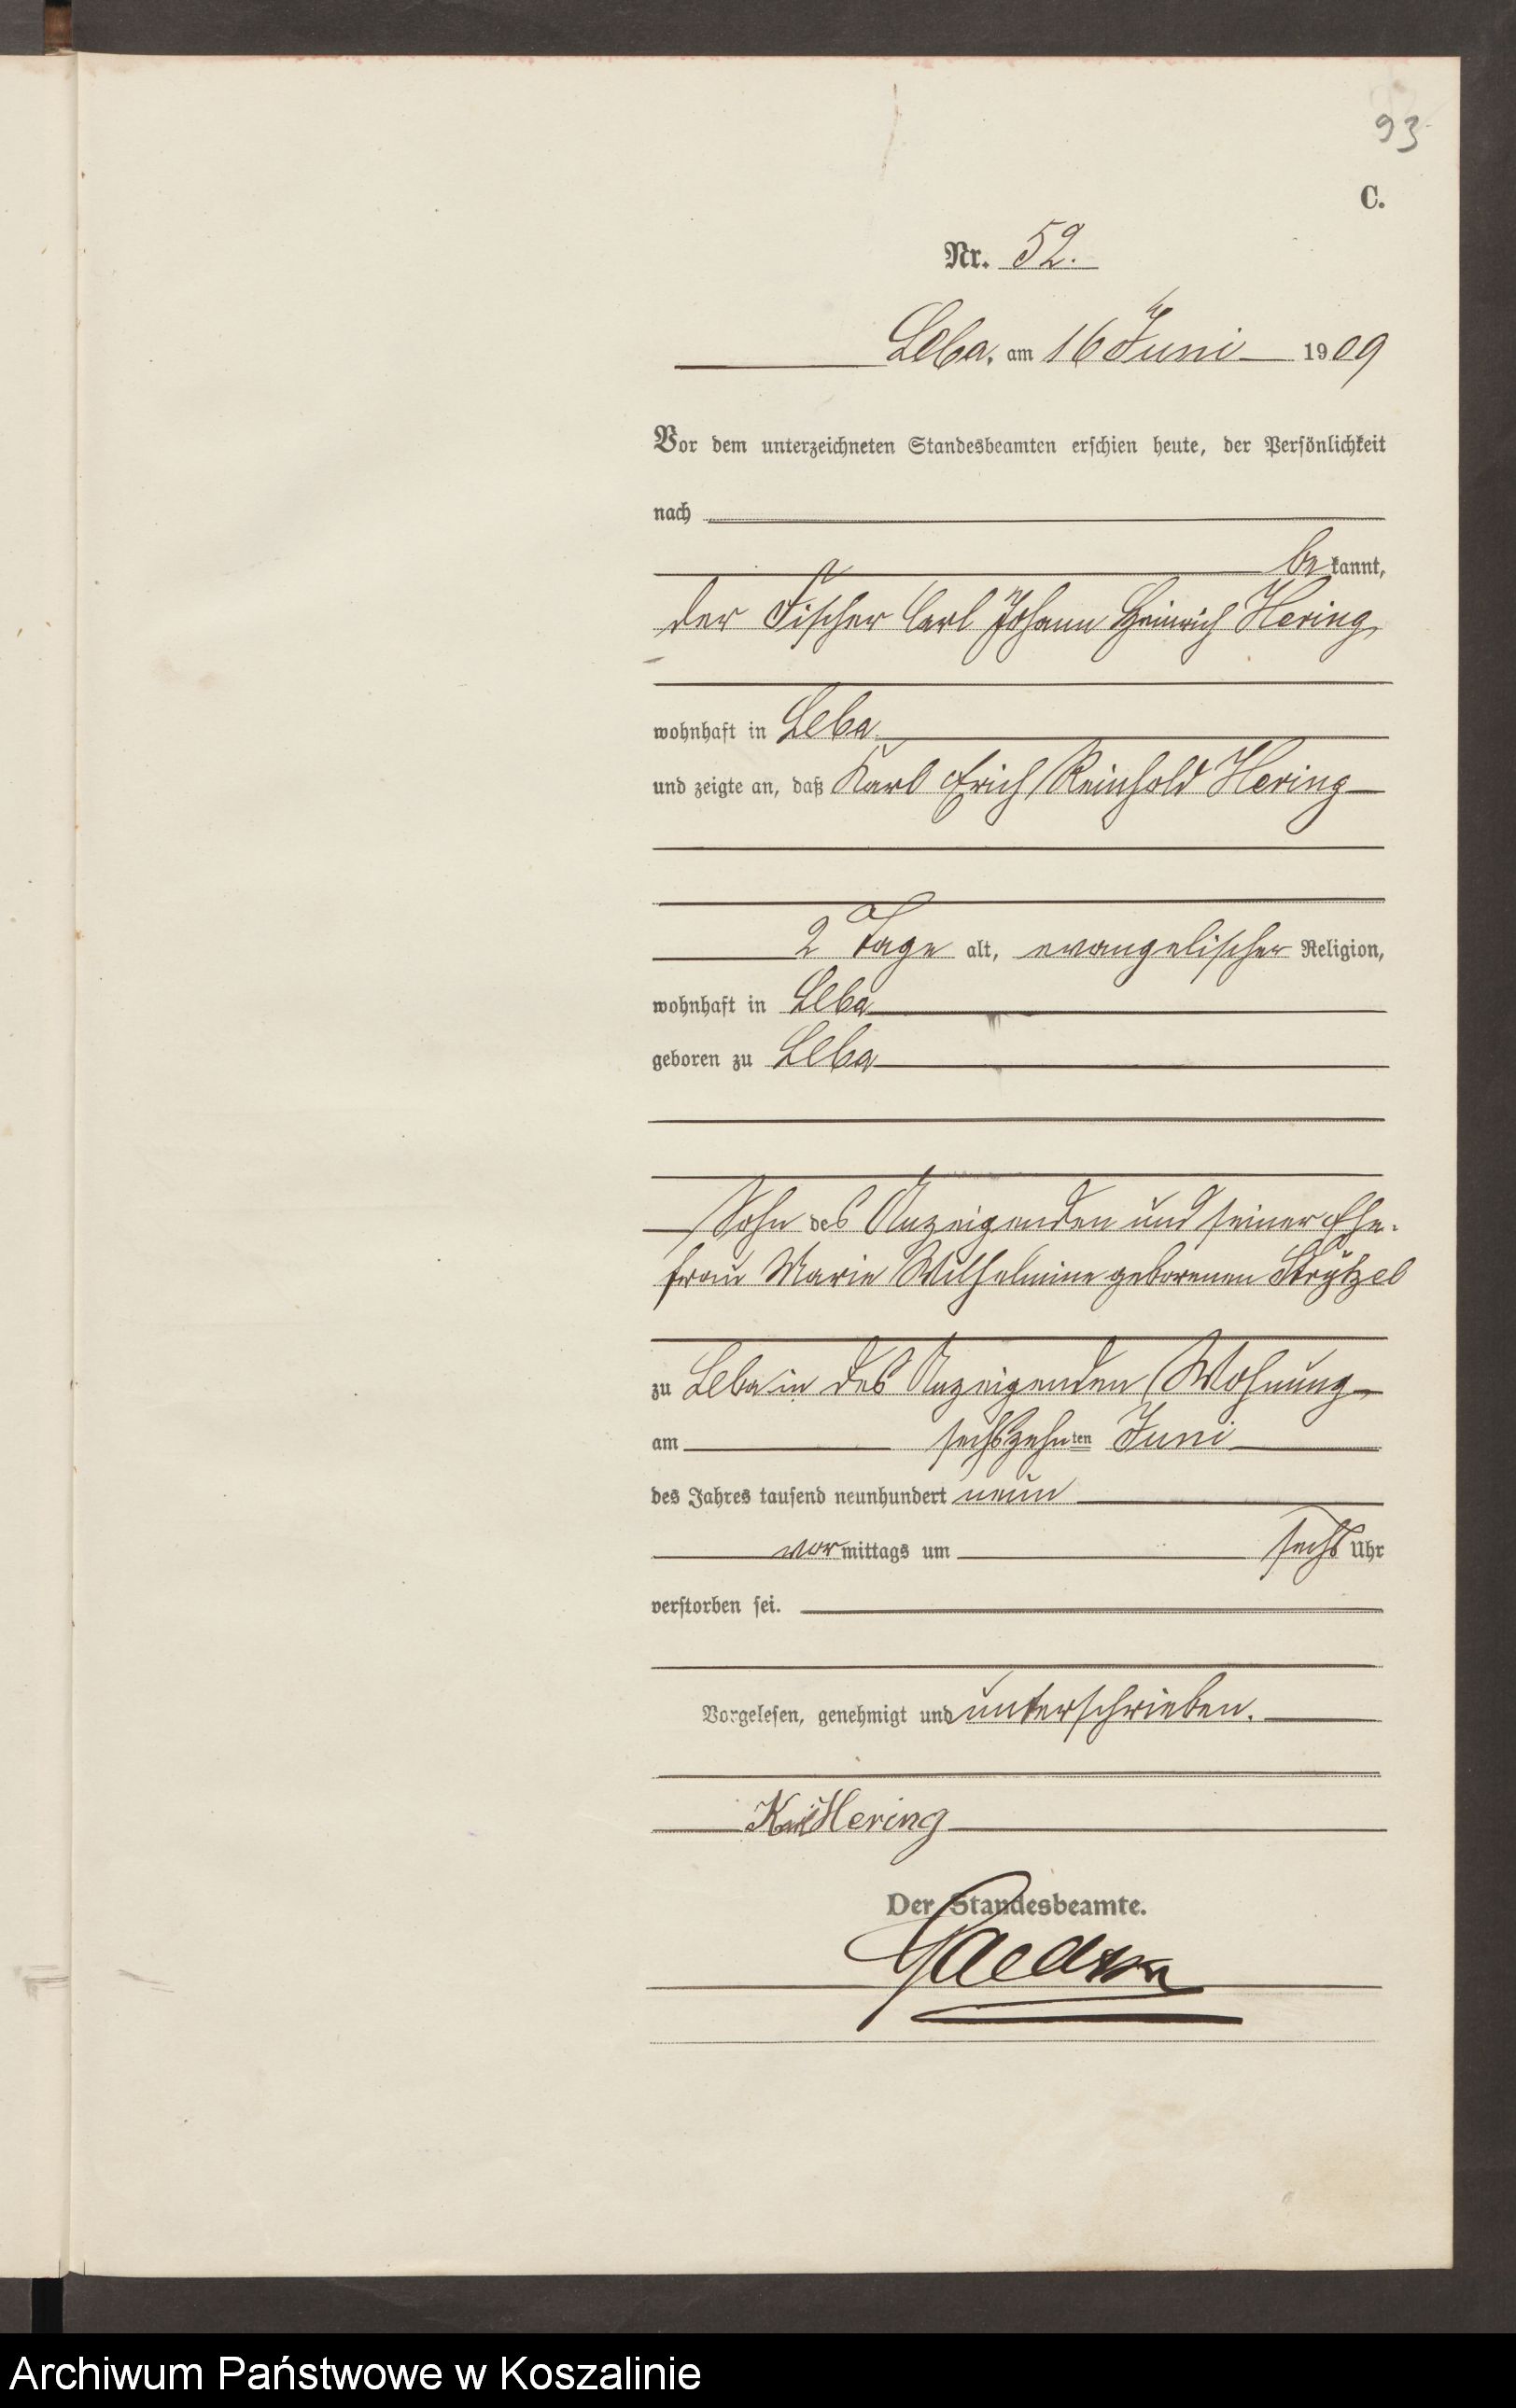 93
C.
Nr. 52.
Leba, am 16 Juni 1909
Vor dem unterzeichneten Standesbeamten erschien heute, der Persönlichkeit
nach
bekannt,
der Fischer Carl Johann Heinrich Hering,
wohnhaft in Leba
und zeigte an, daß Karl Erich Reinhold Hering
2 Tage alt, evangelischer Religion,
wohnhaft in Leba
geboren zu Leba
Sohn des Anzeigenden und seiner Ehe-
frau Marie Wilhelmine geborenen
zu Leba in des Anzeigenden Wohnung
am sechszehnten Juni
des Jahres tausend neunhundert neun
vormittags um sechs Uhr
verstorben sei.
Vorgelesen, genehmigt und unterschrieben.
Karl Hering
Der Standesbeamte.
Archiwum Państwowe w Koszalinie